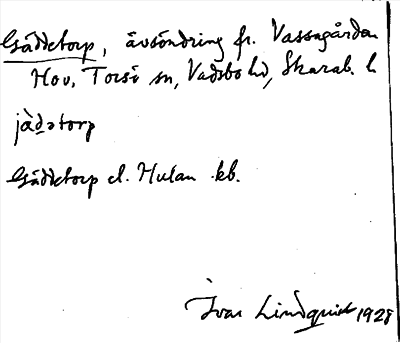 Gäddetorp, avsöndring fr. Vassagården
Hov, Torsö sn, Vadsbo hd, Skarab. l
jàdətorp
Gäddetorp el. Hulan kb.
Ivar Lindquist 1928